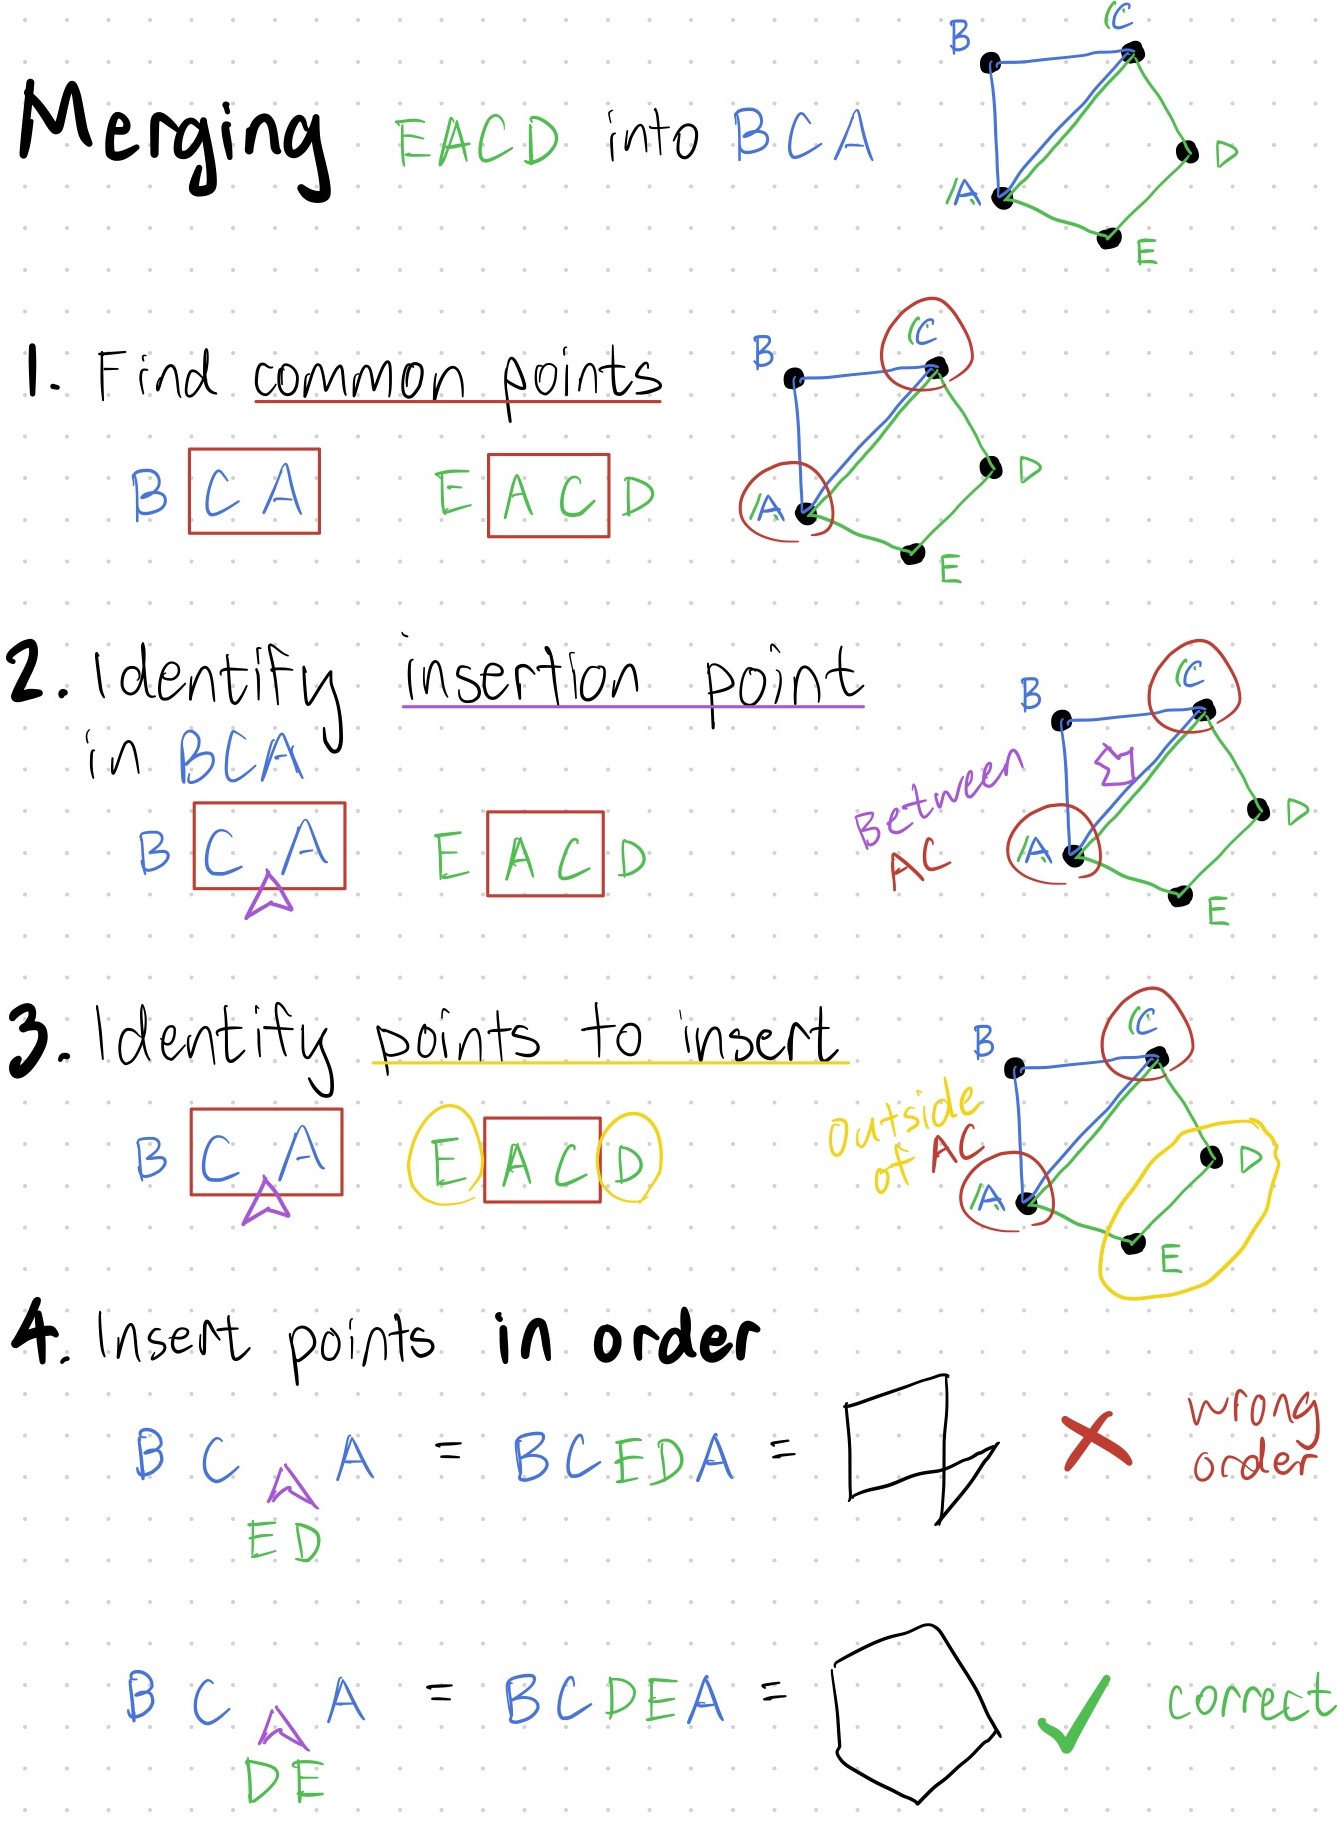 Merging EACD into BCA
B C
A D
E
1. Find common points
B C A E A C D
B C
A D
E
2. Identify insertion point
in BCA
B C A E A C D
Between
AC
B C
A D
E
3. Identify points to insert
B C A E A C D
Outside
of AC
B C
A D
E
4. Insert points in order
B C A = B C E D A =
E D
wrong
order
B C A = B C D E A =
D E
correct